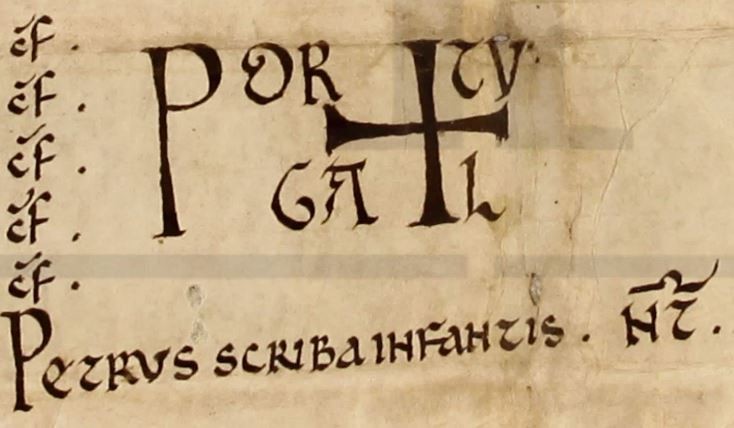 c̄f .
c̄f .
c̄f .
c̄f .
c̄f .
POR TV
GA L
PETRVS SCRIBA INFANTIS . N̄T .